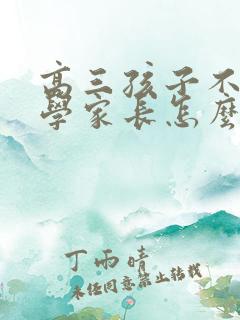 高三孩子不
學家長怎麼
丁雨晴
未经同意禁止转载